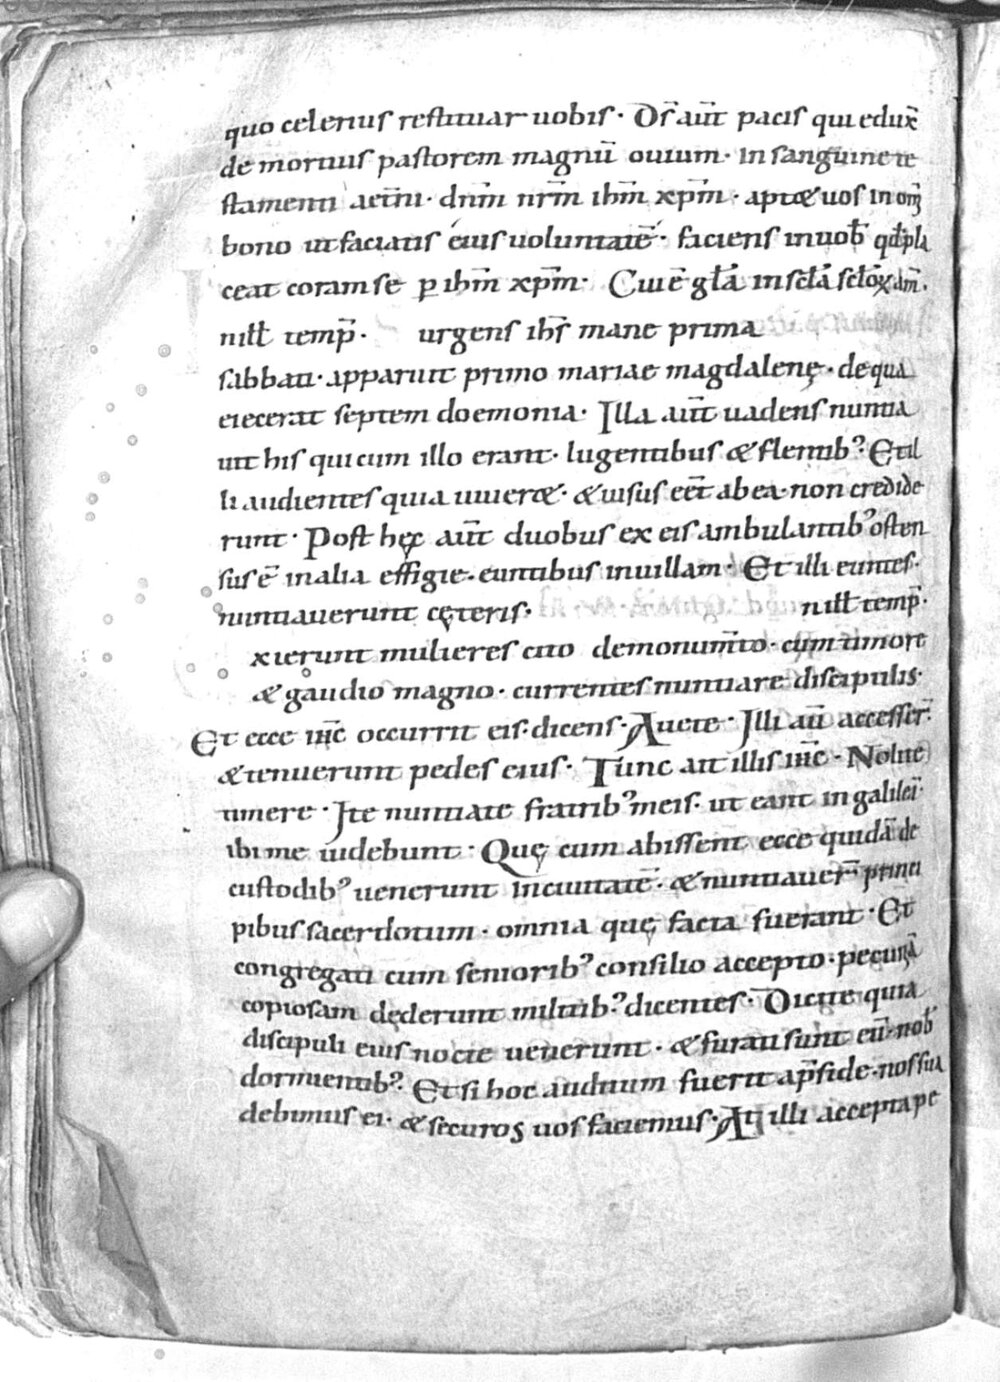 quo celerius restituar uobis. Ds̄ aut̄ pacis qui edux̄
de mortuis pastorem magnū ouium. in sanguine te
stamenti aet̄ni. dnm̄ nrm̄ ihm̄ xpm̄. aptet uos in om̄i
bono ut faciatis eius uoluntatē. faciens in uob̄ qđ pla
ceat coram se ꝑ ihm̄ xpm̄. Cui ē głā in scłā scłoꝝ am̄.
niłł temp̄. urgens ihs̄ mane prima
sabbati. apparuit primo mariae magdalenę. de qua
eiecerat septem doemonia. Illa aut̄ uadens nuntia
uit his qui cum illo erant. lugentibus & flentib; Et il
li audientes quia uiueret. & uisus eēt ab ea. non credide
runt. Post hęc aut̄ duobus ex eis ambulantib; osten
sus ē in alia effigie. euntibus in uillam. Et illi euntes.
nuntiauerunt cęteris. niłł temp̄.
xierunt mulieres cito de monum̄to. cum timore
& gaudio magno. currentes nuntiare discipulis.
Et ecce ihc̄ occurrit eis. dicens. Auete. Illi aū accesser̄.
& tenuerunt pedes eius. Tunc ait illis ihc̄. Nolite
timere. Ite nuntiate fratrib; meis. ut eant in galileā.
ibi me uidebunt. Quę cum abissent ecce quidā de
custodib; uenerunt in ciuitatē. & nuntiauer̄ princi
pibus sacerdotum. omnia quę facta fuerant. Et
congregati cum seniorib; consilio accepto. pecuniā
copiosam dederunt militib; dicentes. Dicite quia
discipuli eius nocte uenerunt. & furati sunt eū. nob̄
dormientib; Et si hoc auditum fuerit a p̄side. nos sua
debimus ei. & securos uos faciemus. At illi accepta pe